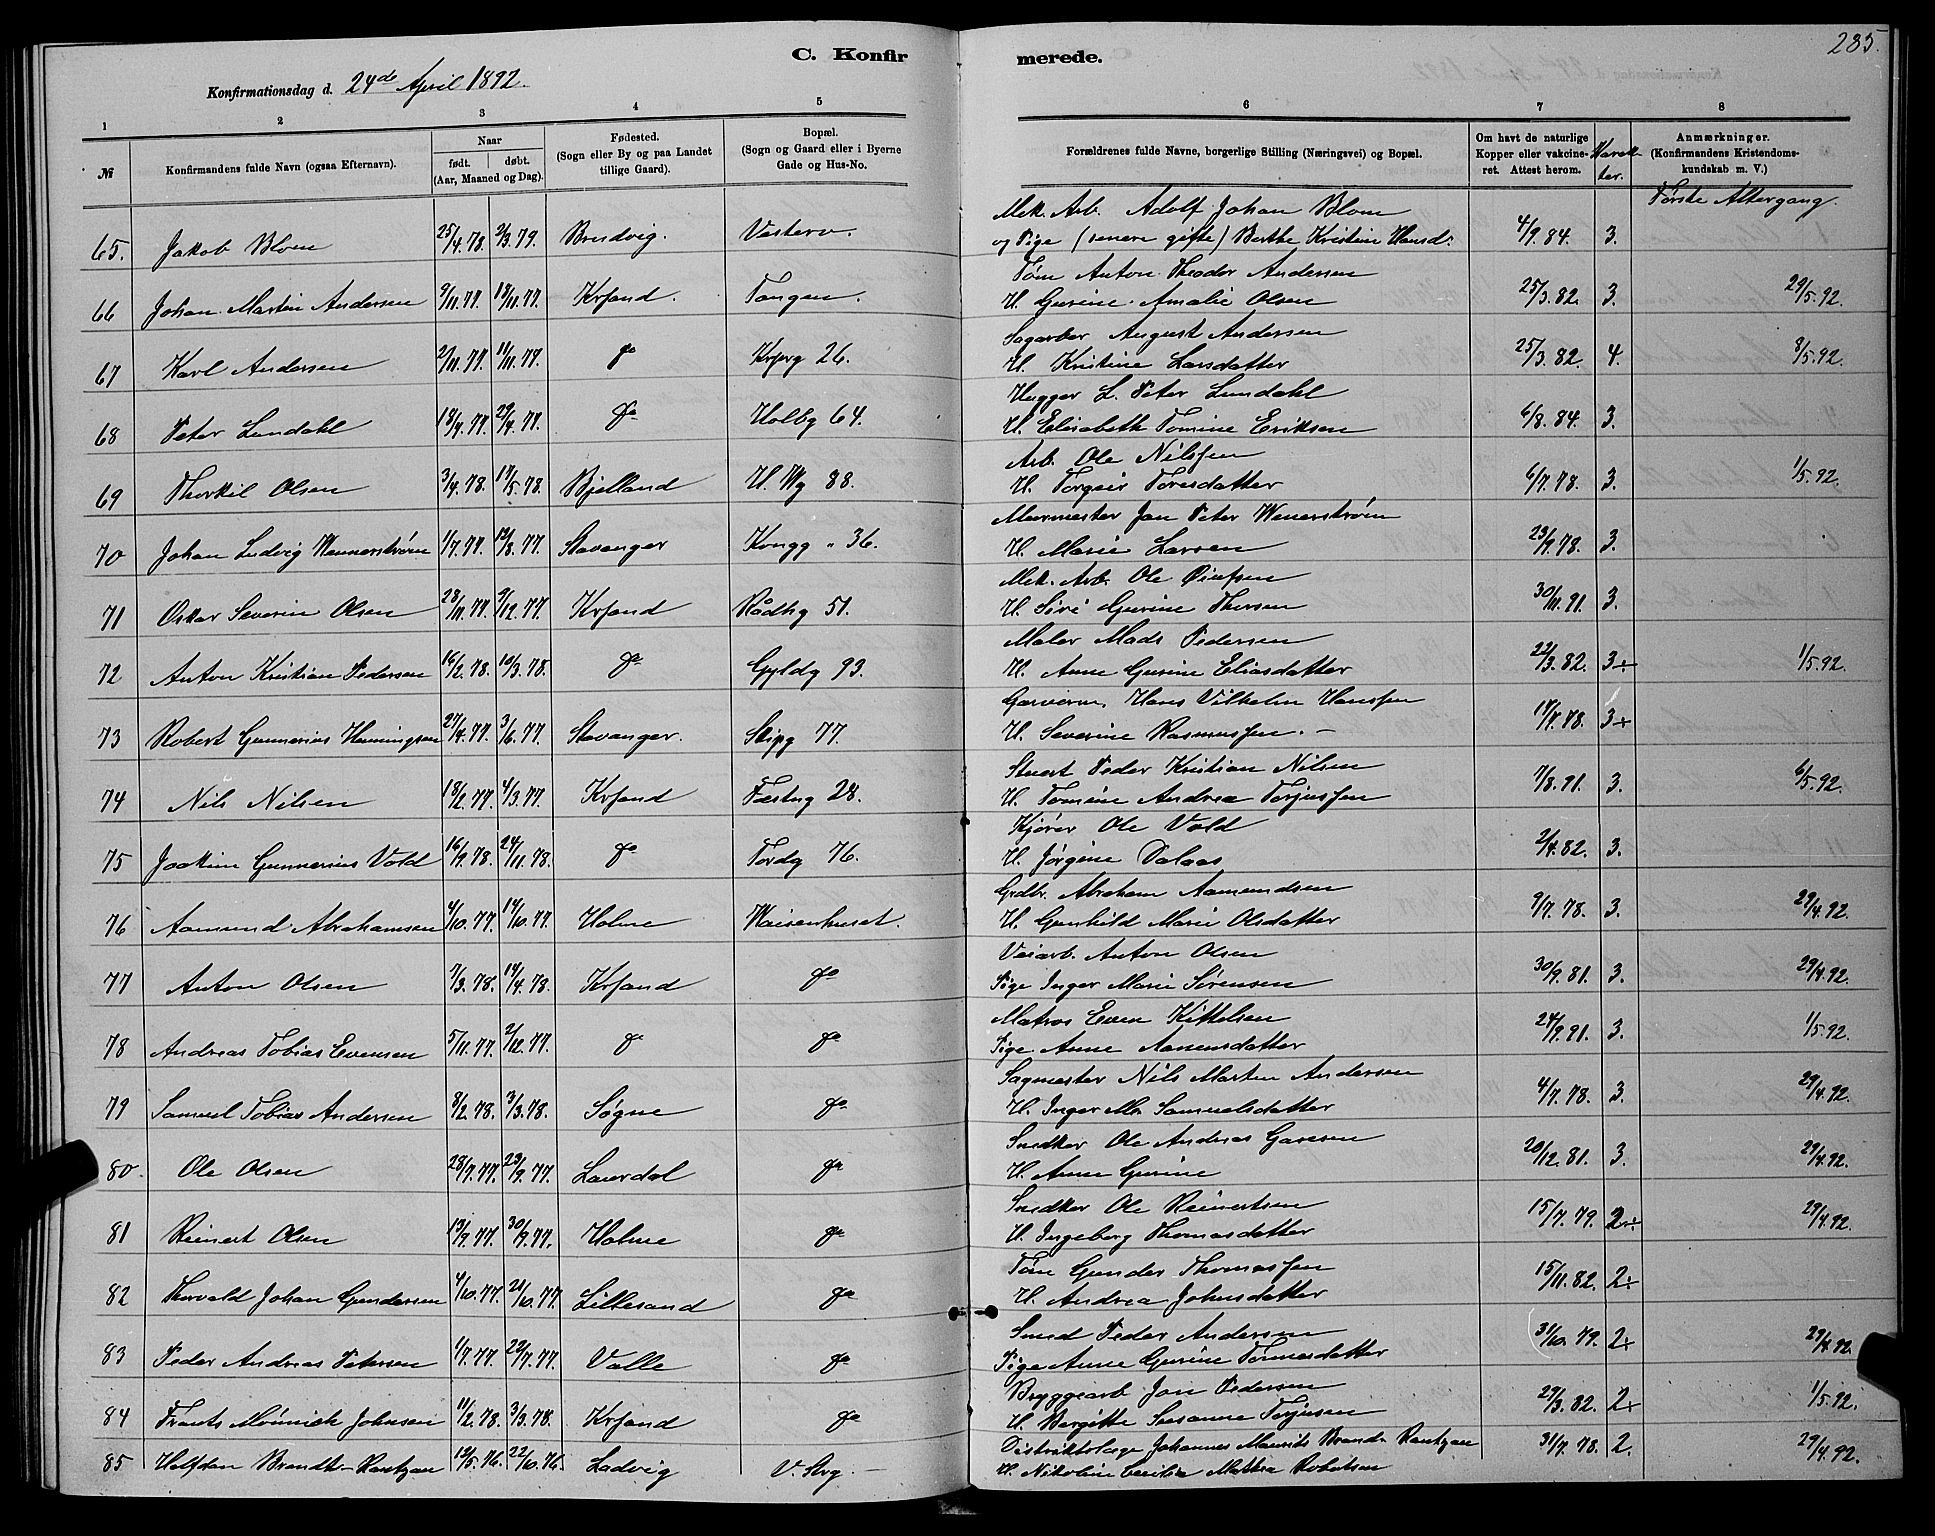 C. Konfir merede. 285.
Konfirmationsdag d. 24de April 1892.
1 2 3 4 5 6 7 8
№ Konfirmandens fulde Navn (ogsaa Efternavn). Naar født. døbt. (Aar, Maaned og Dag). Fødested. (Sogn eller By og paa Landet tillige Gaard). Bopæl. (Sogn og Gaard eller i Byerne Gade og Hus-No. Forældrenes fulde Navne, borgerlige Stilling (Næringsvei) og Bopæl. Om havt de naturlige Kopper eller vakcineret. Attest herom. Karakter. Anmærkninger. (Konfirmandens Kristendomskundskab m. V.)
Første Altergang.
Mek. Arb. Adolf Johan Blom
65. Jakob Blom 25/4.78. 2/3.79. Bredvig. Vestero. og Pige (senere gifte) Berthe Kristine Hansd. 4/9.84. 3.
Tøm Anton Theodor Andersen
66 Johan Martin Andersen 9/11.77. 18/11.77. Krsand. Tangen. H. Gurine Amalie Olsen 25/3.82. 3. 29/5.92.
Sagarber August Andersen
67 Karl Andersen 2/11.77. 11/11.77. do Krprg 26. H. Kristine Larsdatter 25/3.82. 4. 8/5.92.
Hugger L. Peter Lundahl
68 Peter Lundahl 18/4.77. 29/4.77. do Holbg 64. H. Elisabeth Tomine Eriksen 6/8.84. 3.
Arb. Ole Nilssen
69 Thorkil Olsen 3/4.78. 17/5.78. Bjelland H. Wg 88. H. Torgeir Toresdatter 6/7.78. 3. 1/5.92.
Murmester Jan Peter Wenerstrøm
70 Johan Ludvig Wennerstrøm 1/7.77. 12/8.77. Stavanger Kongg " 36. H. Marie Larsen 23/9.78. 3.
Mek. Arb. Ole Olufsen
71 Oskar Severin Olsen 28/11.77. 9/12.77. Krsand Rådhg 51. H. Siri Gurine Thorsen 30/11.91. 3.
Maler Mads Pedersen
72 Anton Kristian Pedersen 16/2.78. 10/3.78. do Gyldg 93. H. Anne Gurine Eliasdatter 22/3.82. 3÷ 1/5.92.
Garversv. Hans Vilhelm Hanssen
73 Robert Gunnerius Henningsen 27/4.77. 3/6.77. Stavanger. Skipg 77. H. Severine Rasmussen. – 17/7.78. 3÷
Stuert Peder Kristian Nilsen
74 Nils Nilsen 18/2.77. 4/3.77. Krsand Festng 28. H. Tomine Andrea Torjussen 7/8.91. 3. 6/5.92.
Kjører Ole Vold
75 Joakim Gunnerius Vold 16/9.78. 24/11.78. do Tordg 76. H. Jørgine Dalaas 2/4.82. 3.
Grdbr. Abraham Aamundsen
76 Aamund Abrahamsen 4/10.77. 14/10.77. Holme Waisenhuset. H. Gunhild Marie Olsdatter 9/7.78. 3. 29/4.92.
Veiarb. Anton Olsen
77 Anton Olsen 7/3.78. 14/4.78. Krsand do Pige Inger Marie Sørensen 30/9.81. 3. 29/4.92.
Matros Even Kittelsen
78 Andreas Tobias Evensen 5/11.77. 2/12.77. do do Pige Anne Aanensdatter 24/9.91. 3. 1/5.92.
Sagmester Nils Martin Andersen
79 Samuel Tobias Andersen 8/2.78. 3/3.78. Søgne do H. Inger Ma. Samuelsdatter 4/7.78. 3. 29/4.92.
Snedker Ole Andreas Gavesen
80. Ole Olsen 28/7.77. 23/9.77. Laurdal do H. Anne Gurine 20/12.81. 3. 29/4.92.
Snedker Ole Reinertsen
81 Reinert Olsen 13/9.77. 30/9.77. Holme do H. Ingeborg Thomasdatter 15/7.79. 2÷ 29/4.92.
Tøm Gunder Thomassen
82 Thorvald Johan Gundersen 4/10.77. 21/10.77. Lillesand do H. Andrea Johnsdatter 15/11.82. 2÷
Smed Peder Andersen
83 Peder Andreas Petersen 1/7.77. 22/7.77. Valle do Pige Anne Gurine Tønnesdatter 31/10.79. 2÷ 29/4.92.
Bryggearb Jon Pedersen
84 Frants Mønnich Johnsen 11/2.78. 3/3.78. Krsand do H. Bergitte Susanne Torjusen 29/3.82. 2÷ 1/5.92.
Distriktslæge Johannes Maurits Brandt Rantzau
85 Halfdan Brandt-Rantzau 12/5.76. 22/10.76. Ladvig V. Strg. – H. Nikoline Cecilia Mathea Robertson 31/7.78. 2. 29/4.92.